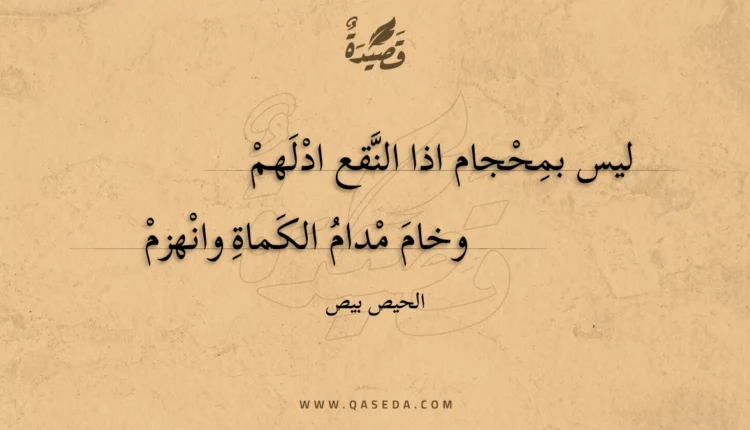 قَصِيْدَةٌ
ليس بمِحْجام اذا النَّقع ادْلَهمْ
وخامَ مْدامُ الكَماةِ وانْهزمْ
الحيص بيص
WWW.QASEDA.COM